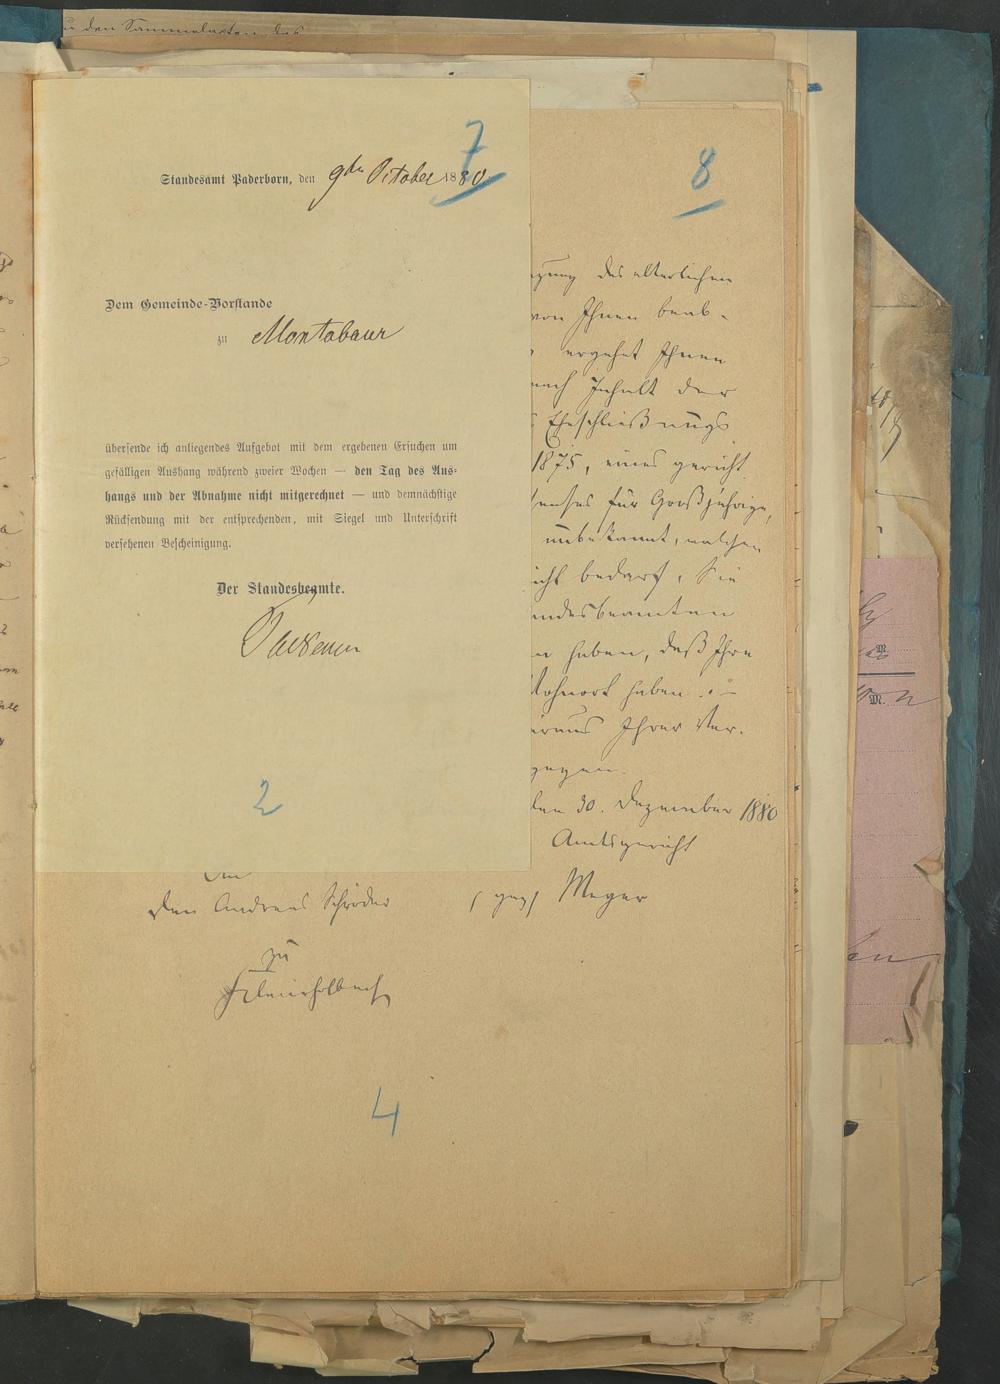 zu den Sammelakten des
7
Standesamt Paderborn, den 9ten October 1880.
Dem Gemeinde-Vorstande
zu Montabaur
übersende ich anliegendes Aufgebot mit dem ergebenen Ersuchen um
gefälligen Aushang während zweier Wochen — den Tag des Aus-
hangs und der Abnahme nicht mitgerechnet — und demnächstige
Rücksendung mit der entsprechenden, mit Siegel und Unterschrift
versehenen Bescheinigung.
Der Standesbeamte.
2
8
des elterlichen
von Ihnen beab-
ergehet Ihnen
nach Inhalt der
Eheschließungs
1875, eines gericht
für Großjährige,
unbekannt, welchen
bedarf. Sie
ndesbeamten
haben, daß Ihre
Wohnort haben
Ihrer Ver-
gegen.
den 30. Dezember 1880
Amtsgericht
(gez) Meyer
An
den Andreas Schröder
zu
Kleinholbach
4
M.
M.